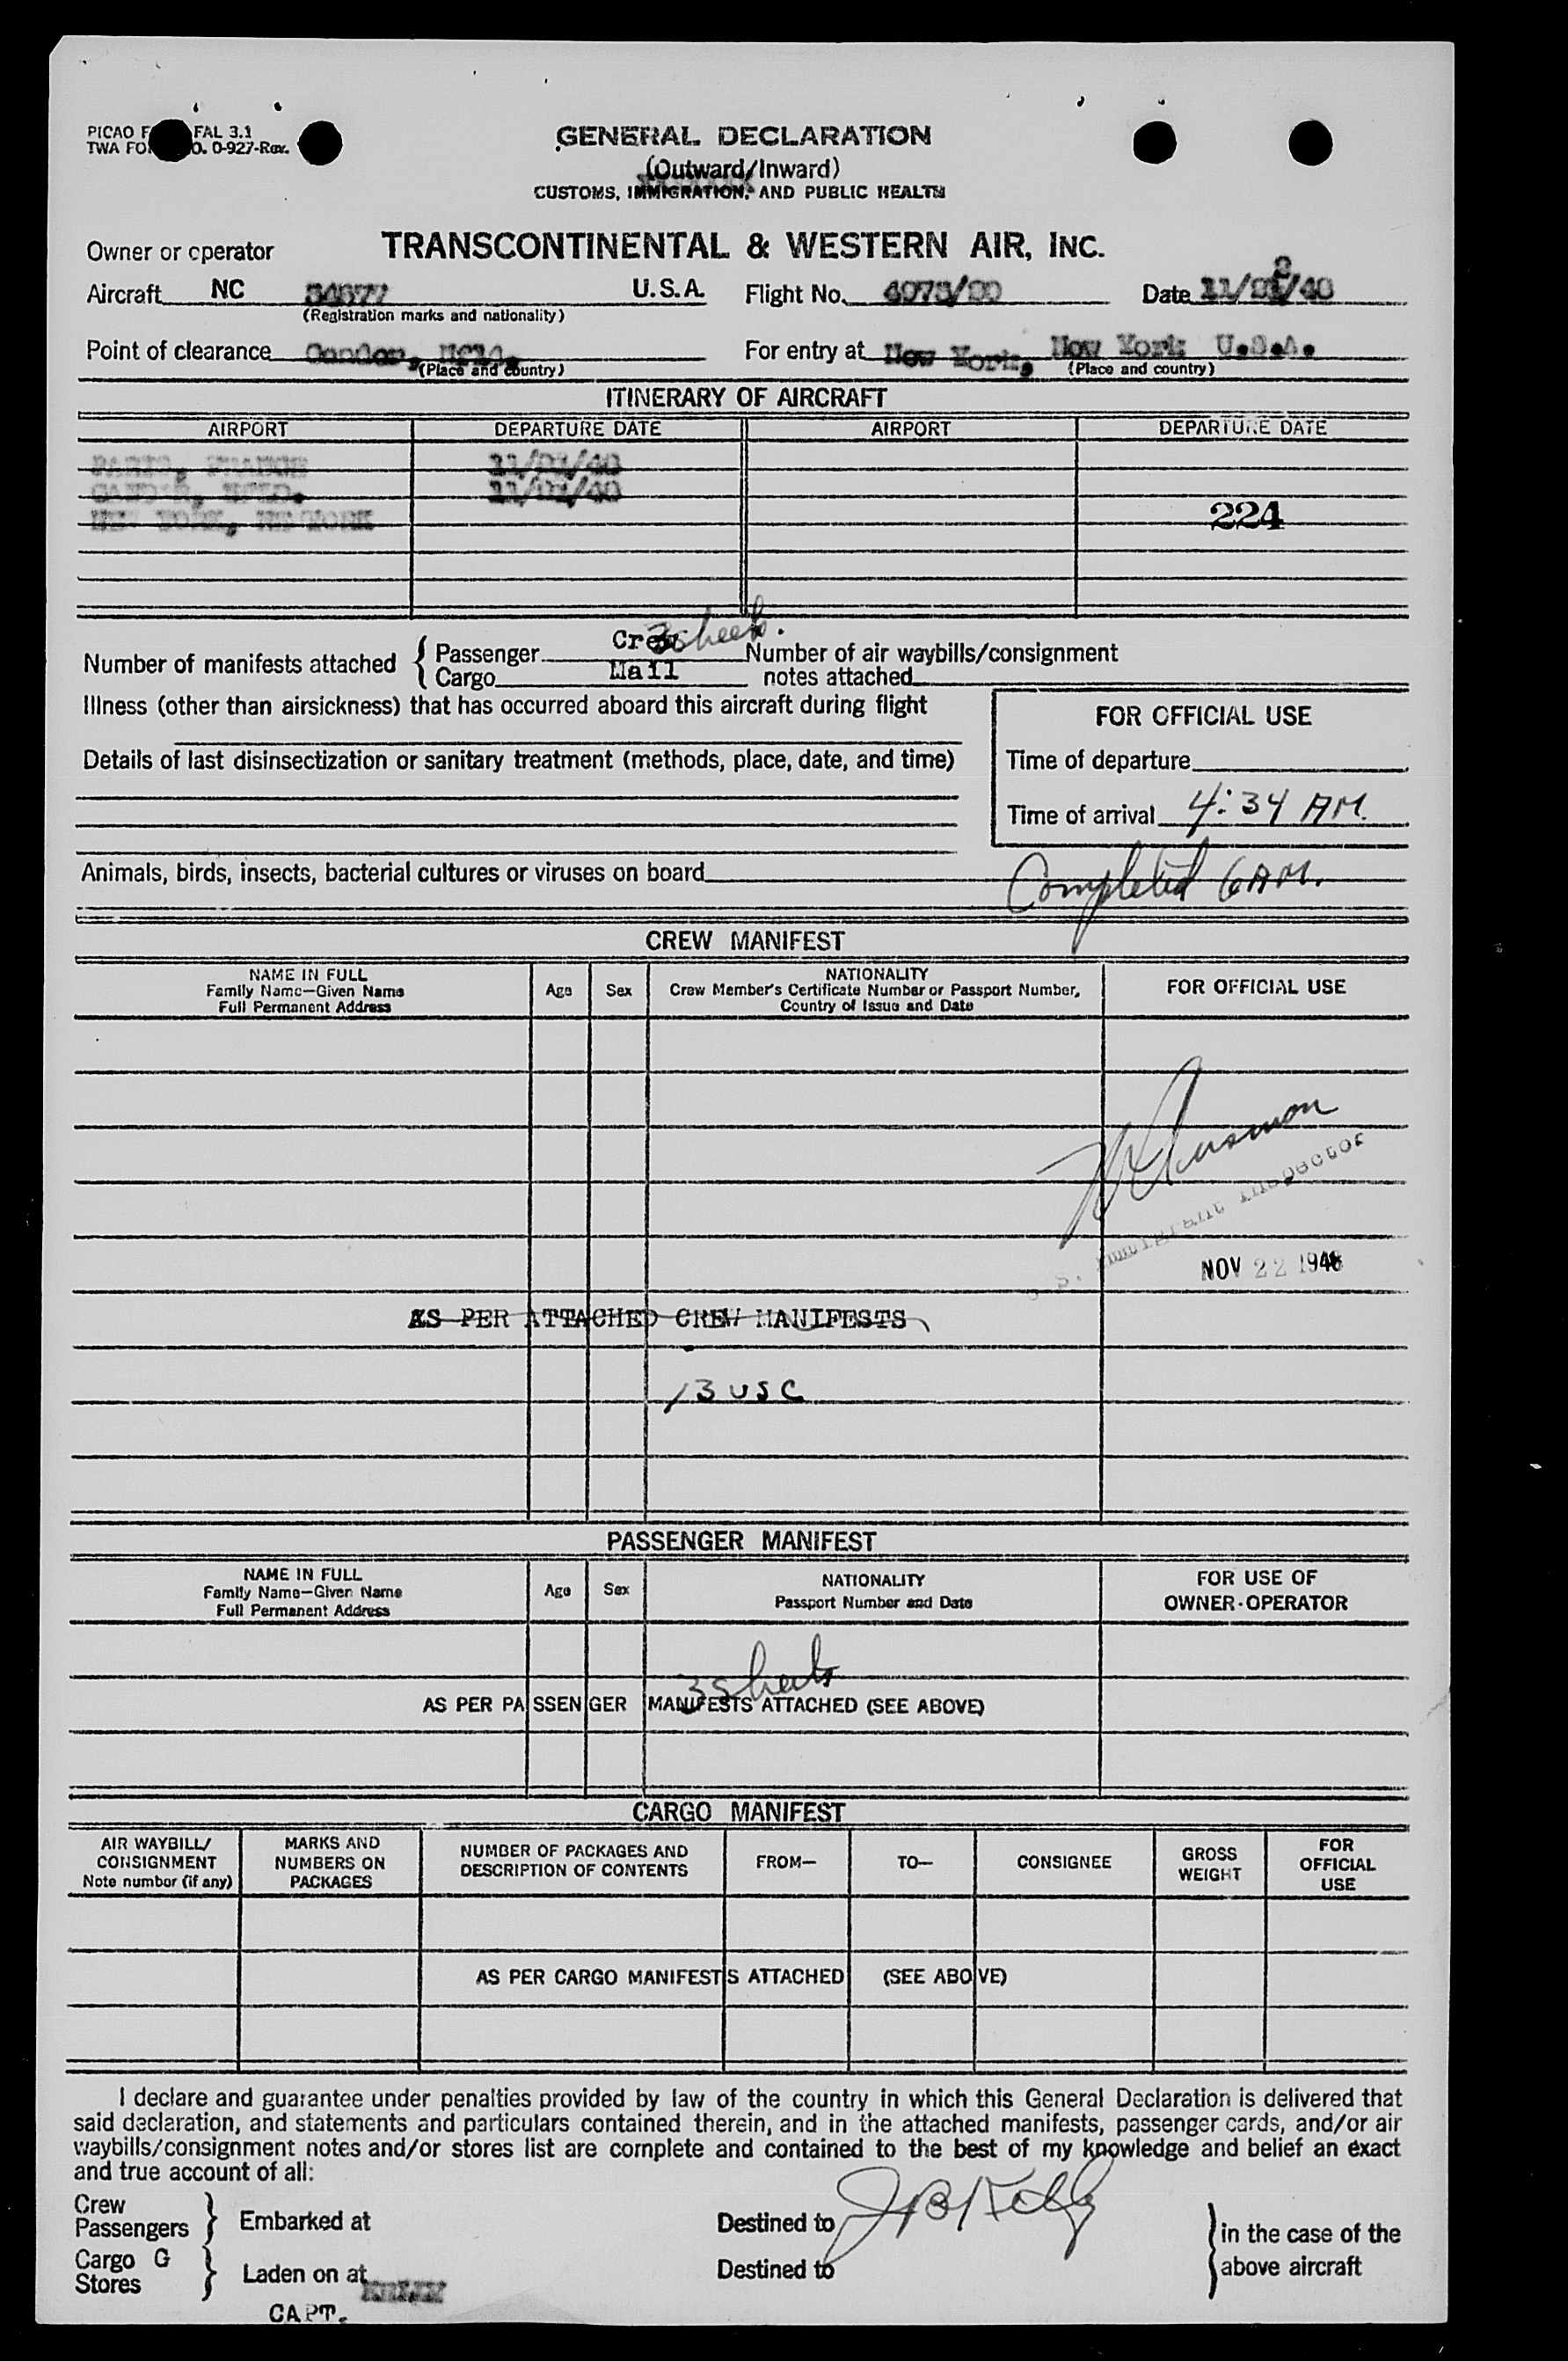 PICAO F FAL 3.1
TWA FO O. 0-927-Rev.
GENERAL DECLARATION
(Outward/Inward)
CUSTOMS, IMMIGRATION, AND PUBLIC HEALTH
Owner or operator TRANSCONTINENTAL & WESTERN AIR, INC.
Aircraft NC U.S.A. Flight No. Date
(Registration marks and nationality)
Point of clearance For entry at New York, New York U.S.A.
(Place and country) (Place and country)
ITINERARY OF AIRCRAFT
AIRPORT DEPARTURE DATE AIRPORT DEPARTURE DATE
PARIS, FRANCE
NEW YORK, NEW YORK 224
Crew 3 sheets.
Number of manifests attached { Passenger Number of air waybills/consignment
Cargo Mail notes attached
Illness (other than airsickness) that has occurred aboard this aircraft during flight
FOR OFFICIAL USE
Details of last disinsectization or sanitary treatment (methods, place, date, and time)
Time of departure
Time of arrival 4:34 AM.
Animals, birds, insects, bacterial cultures or viruses on board
Completed 6 AM.
CREW MANIFEST
NAME IN FULL
Family Name—Given Name
Full Permanent Address
Age Sex
NATIONALITY
Crew Member's Certificate Number or Passport Number,
Country of Issue and Date
FOR OFFICIAL USE
S. Immigrant Inspector
NOV 22 1946
AS PER ATTACHED CREW MANIFESTS
13 USC
PASSENGER MANIFEST
NAME IN FULL
Family Name—Given Name
Full Permanent Address
Age Sex
NATIONALITY
Passport Number and Date
FOR USE OF
OWNER-OPERATOR
3 sheets
AS PER PASSENGER MANIFESTS ATTACHED (SEE ABOVE)
CARGO MANIFEST
AIR WAYBILL/
CONSIGNMENT
Note number (if any)
MARKS AND
NUMBERS ON
PACKAGES
NUMBER OF PACKAGES AND
DESCRIPTION OF CONTENTS
FROM—
TO—
CONSIGNEE
GROSS
WEIGHT
FOR
OFFICIAL
USE
AS PER CARGO MANIFESTS ATTACHED (SEE ABOVE)
I declare and guarantee under penalties provided by law of the country in which this General Declaration is delivered that
said declaration, and statements and particulars contained therein, and in the attached manifests, passenger cards, and/or air
waybills/consignment notes and/or stores list are complete and contained to the best of my knowledge and belief an exact
and true account of all:
Crew
Passengers } Embarked at Destined to } in the case of the
Cargo G
Stores } Laden on at Destined to above aircraft
CAPT.